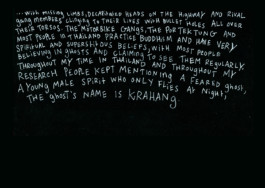 ...WITH MISSING LIMBS, DECAPITATED HEADS ON THE HIGHWAY AND RIVAL
GANG MEMBERS CLINGING TO THEIR LIVES WITH BULLET HOLES ALL OVER
THEIR TORSOS. THE MOTORBIKE GANGS, THE POR TEK TUNG AND
MOST PEOPLE IN THAILAND PRACTICE BUDDHISM AND HAVE VERY
SPIRITUAL AND SUPERSTITIOUS BELIEFS, WITH MOST PEOPLE
BELIEVING IN GHOSTS AND CLAIMING TO SEE THEM REGULARLY.
THROUGHOUT MY TIME IN THAILAND AND THROUGHOUT MY
RESEARCH PEOPLE KEPT MENTIONING A FEARED GHOST,
A YOUNG MALE SPIRIT WHO ONLY FLIES AT NIGHT,
THE GHOST'S NAME IS KRAHANG